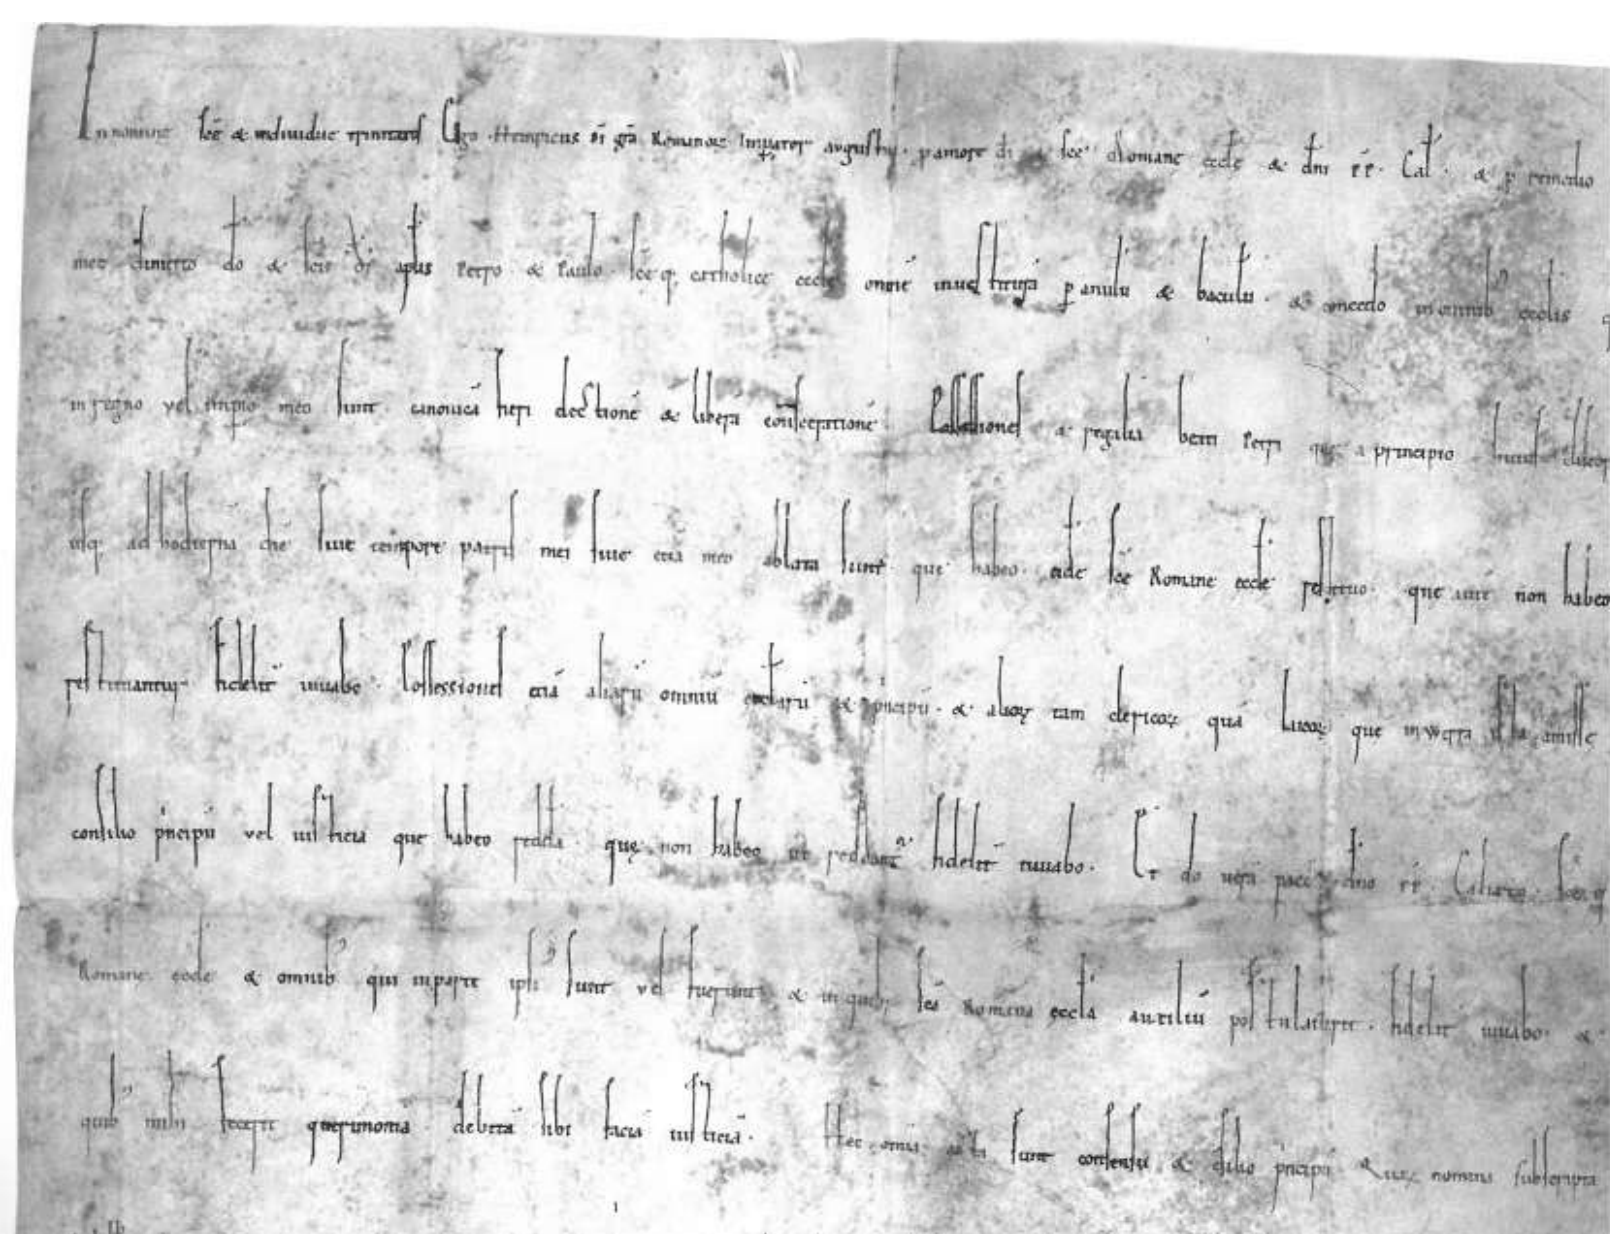 In nomine scē & indiuidue trinitatis Ego Heinricus dī grā Romanoꝝ Imꝑator augustus · p amore dī & scē Romanę ecclę & dn̄i p̄p̄ · Cal̄ · & ꝓ remedio
meę dimitto dō & scīs dī aplis̄ Petro & Paulo · scēq; catholicę eccl̄ę omnē inuestiturā ꝑ anulū & baculū · & concedo in omnib; eccl̄iis
in regno uel imp̄io meo sunt canonicā fieri electionē & liberā consecrationē · Possessiones & regalia beati Petri quę a principio huius discor
usq; ad hodiernā diē siue tempore patris mei siue etiā meo ablata sunt · quę habeo · eidē scē Romanę eccl̄ę restituo · quę autē non habeo
restituantur fidelit̄ iuuabo · Possessiones etiā aliarū omniū eccl̄iarū & p̄ncipū · & alioꝝ tam clericoꝝ quā laicoꝝ quę in werra ista amissę
consilio p̄ncipū uel iusticia quę habeo reddā · quę non habeo ut reddant᷑ fidelit̄ iuuabo · Et do uerā pacē dn̄o p̄p̄ · Calixto · scēq;
Romanę eccl̄ę & omnib; qui in parte ipsi᷒ sunt uel fuerunt & in quib; scā Romana eccl̄ia auxiliū postulauerit · fidelit̄ iuuabo · &
quib; mihi fecerit querimoniā debitā sibi faciā iusticiā · Hec omnia acta sunt consensu & c̄silio p̄ncipū Quoꝝ nomina subscripta